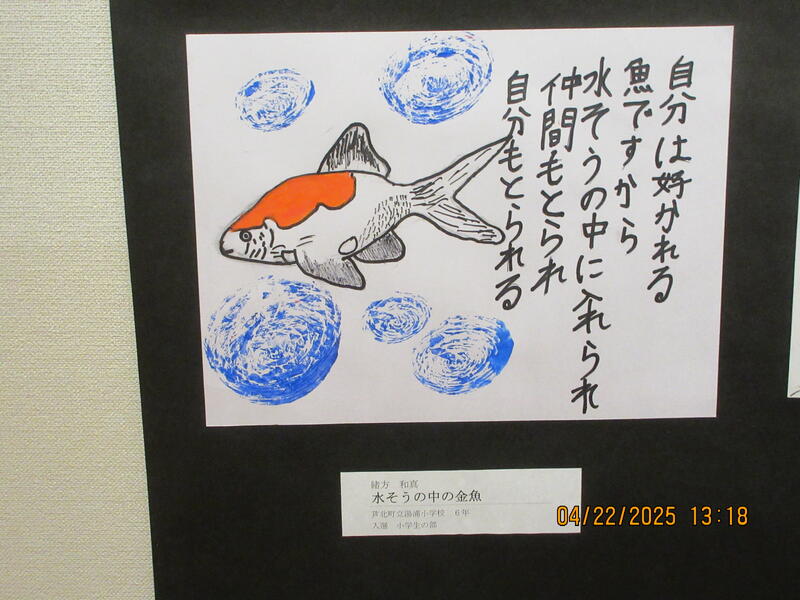 自分は好かれる
魚ですから
水そうの中に入れられ
仲間もとられ
自分もとられる
緒方 和真
水そうの中の金魚
芦北町立湯浦小学校 6年
入選 小学生の部
04/22/2025 13:18